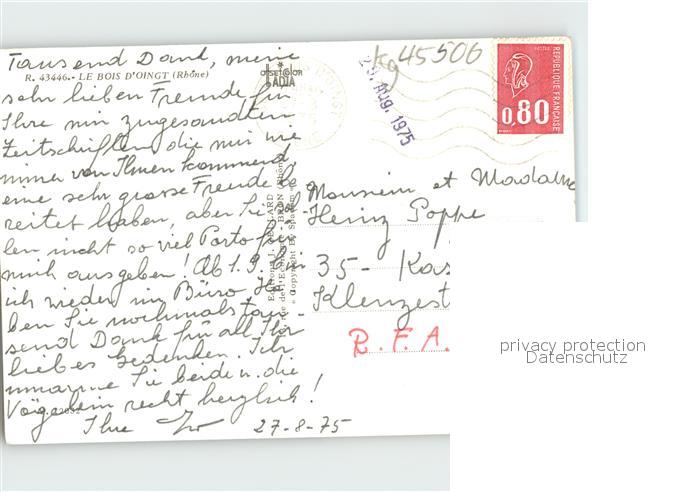 Tausend Dank, meine
R. 43446. - LE BOIS D'OINGT (Rhône)
sehr lieben Freunde für
Ihre mir zugesandten
Zeitschriften die mir wie
immer von Ihnen kommend,
eine sehr grosse Freude be
reitet haben, aber Sie sol-
len nicht so viel Porto für
mich ausgeben! Ab 1.9. bin
ich wieder im Büro. Ha-
ben Sie nochmals tau-
send Dank für all Ihr
liebes Gedenken. Ich
umarme Sie beide u. die
Vögelein recht herzlich!
Ihre
27-8-75
OFFSETCOLOR
LADIA
45506
29. Aug. 1975
POSTES
REPUBLIQUE FRANÇAISE
0,80
Editions J. CELLARD
BRON (Rhône)
© Copyright by
Monsieur et Madame
Heinz Poppe
35 - Kas
Klenzest
R.F.A.
privacy protection
Datenschutz